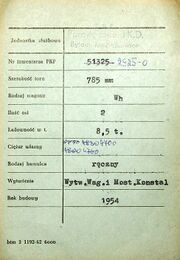 Jednostka służbowa
Nr inwentarza PKP 51325-
Szerokość toru 785 mm
Rodzaj wagonu Wh
Ilość osi 2
Ładowność w t. 8,5 t.
Ciężar własny
Rodzaj hamulca ręczny
Wytwórnia Wytw.Wag.i Most.Konstal
Rok budowy 1954